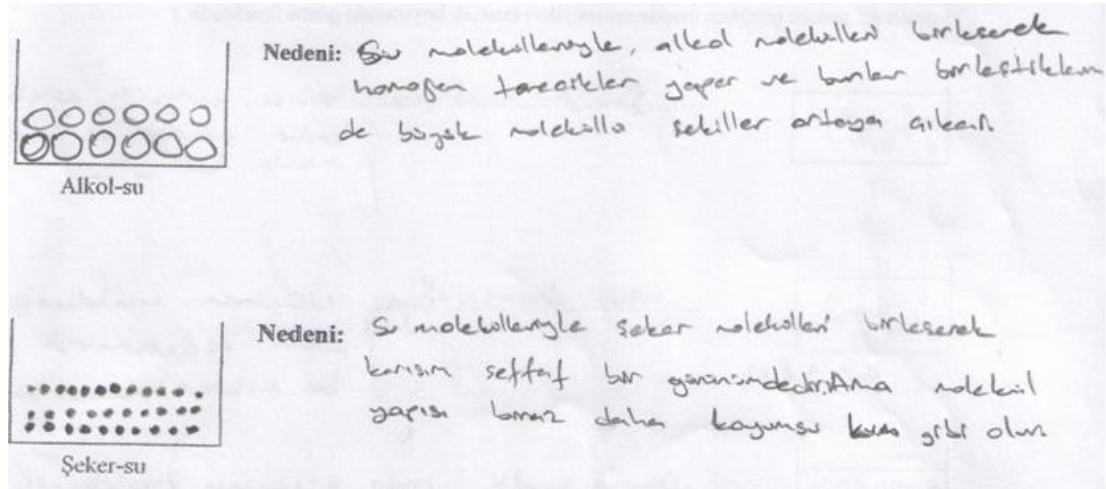 Nedeni: Su molekülleriyle, alkol molekülleri birleşerek
homojen tanecikler yapar ve bunlar birleştiklerin
de büyük moleküllü şekiller ortaya çıkar.
Alkol-su
Nedeni: Su molekülleriyle şeker molekülleri birleşerek
karışım şeffaf bir görünümdedir. Ama molekül
yapısı biraz daha koyumsu gibi olur.
Şeker-su